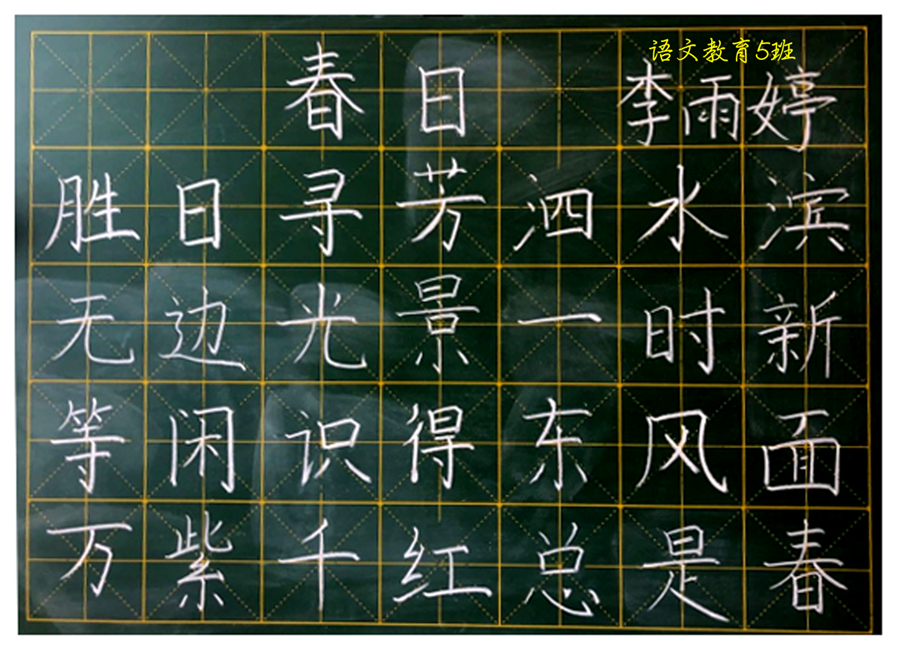 语文教育5班
春日 李雨婷
胜日寻芳泗水滨
无边光景一时新
等闲识得东风面
万紫千红总是春